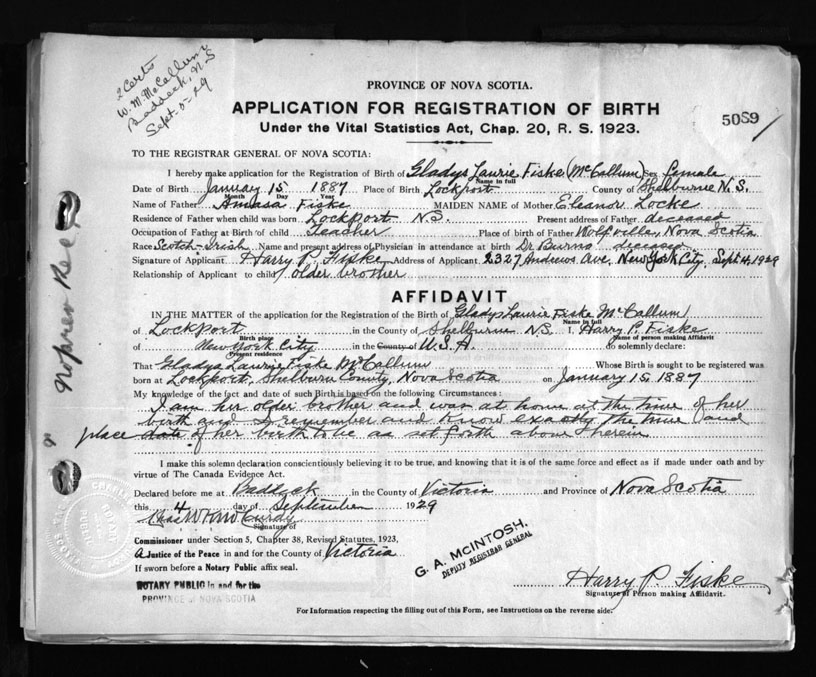 2 Certs
W. M. McCallum
Baddeck, N.S
Sept-5-29
PROVINCE OF NOVA SCOTIA.
APPLICATION FOR REGISTRATION OF BIRTH
5089
Under the Vital Statistics Act, Chap. 20, R. S. 1923.
TO THE REGISTRAR GENERAL OF NOVA SCOTIA:
I hereby make application for the Registration of Birth of Gladys Laurie Fiske (McCallum) Sex female
Name in full
Date of Birth January 15 1887 Place of Birth Lockport County of Shelburne N.S.
Month Day Year
Name of Father Amasa Fiske MAIDEN NAME of Mother Eleanor Locke
Residence of Father when child was born Lockport N.S. Present address of Father deceased
Occupation of Father at Birth of Child Teacher Place of birth of Father Wolfville, Nova Scotia
Race Scotch-Irish Name and present address of Physician in attendance at birth Dr Burns deceased
Signature of Applicant Harry P. Fiske Address of Applicant 2327 Andrews Ave, New York City, Sept 4, 1929
Relationship of Applicant to child older brother
AFFIDAVIT
IN THE MATTER of the application for the Registration of the Birth of Gladys Laurie Fiske McCallum
Name in full
of Lockport in the County of Shelburne N.S. I, Harry P. Fiske
Birth place Name of person making Affidavit
of New York City in the County of U.S.A. do solemnly declare:
Present residence
That Gladys Laurie Fiske McCallum Whose Birth is sought to be registered was
born at Lockport, Shelburn County, Nova Scotia on January 15, 1887
My knowledge of the fact and date of such Birth is based on the following Circumstances:
I am her older brother and was at home at the time of her
birth and I remember and know exactly the time (and
place date of her birth to be as set forth above herein
I make this solemn declaration conscientiously believing it to be true, and knowing that it is of the same force and effect as if made under oath and by
virtue of The Canada Evidence Act.
Declared before me at Baddeck in the County of Victoria and Province of Nova Scotia
this 4 day of September 1929
Signature of
Commissioner under Section 5, Chapter 38, Revised Statutes, 1923,
A Justice of the Peace in and for the County of Victoria
If sworn before a Notary Public affix seal.
NOTARY PUBLIC in and for the
PROVINCE of NOVA SCOTIA
G. A. McINTOSH,
DEPUTY REGISTRAR GENERAL
Harry P. Fiske
Signature of Person making Affidavit.
For Information respecting the filling out of this Form, see Instructions on the reverse side.